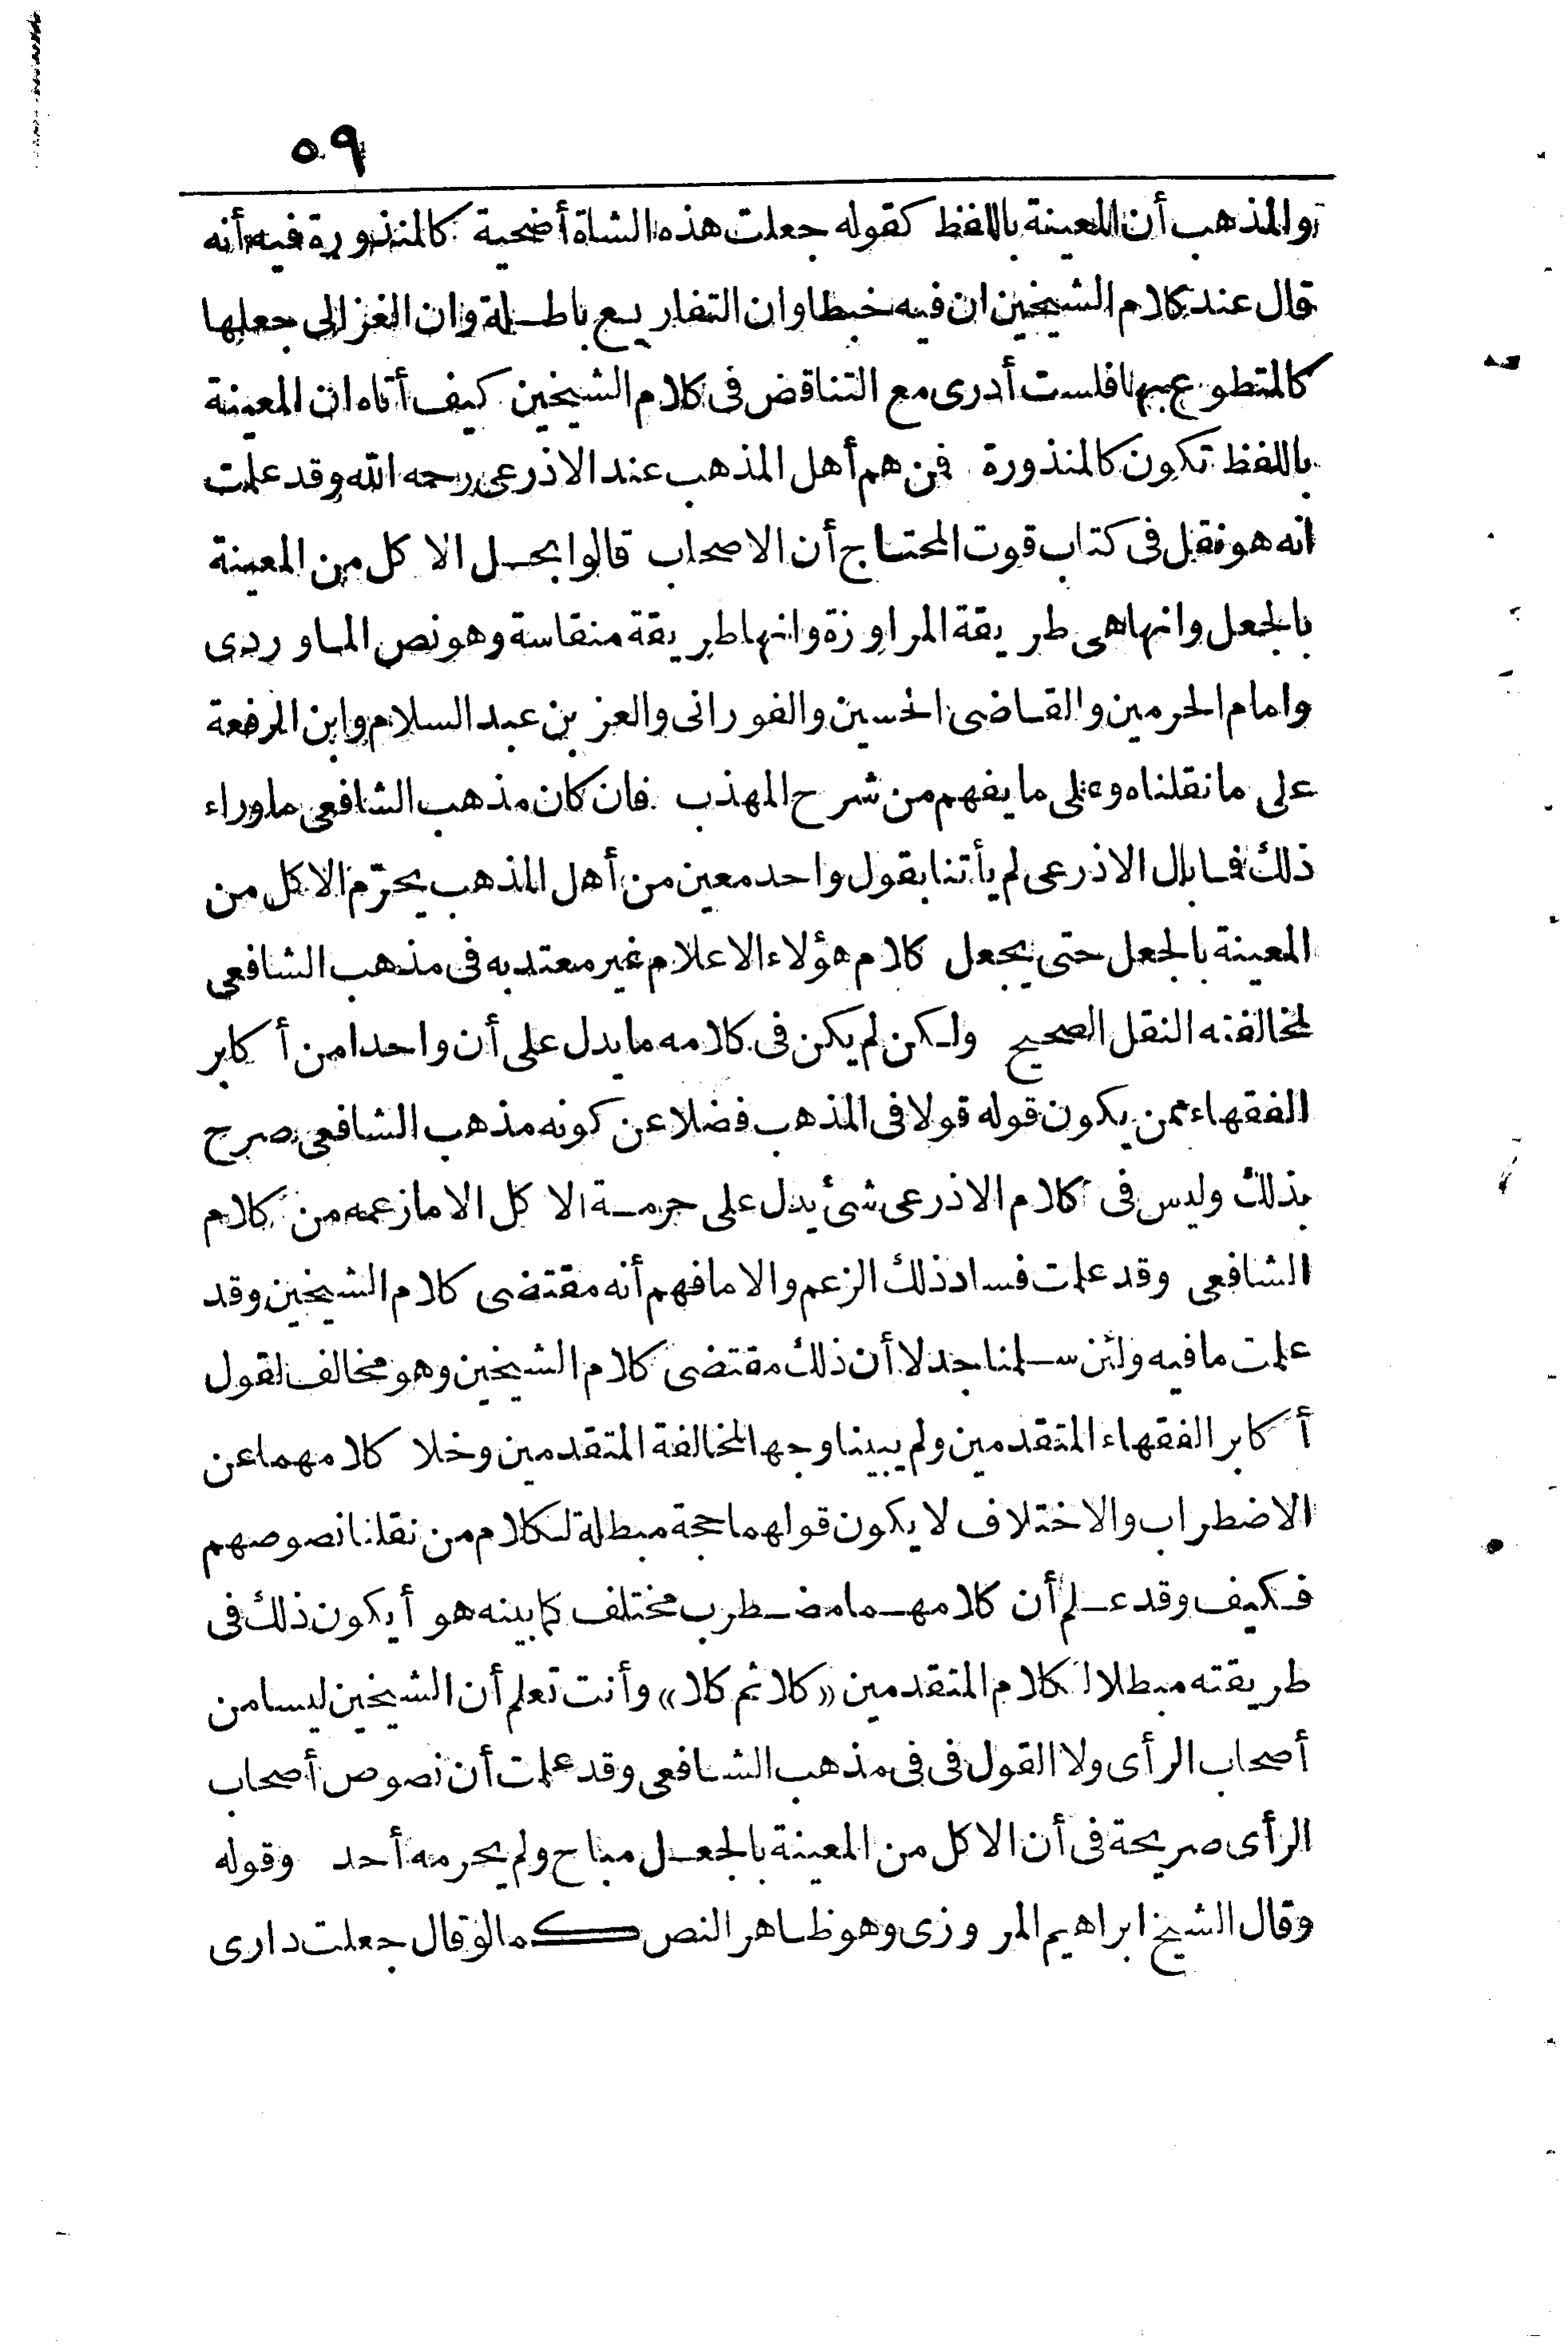 ٥٩
والمذهب أن المعينة باللفظ كقوله جعلت هذه الشاة أضحية كالمنذورة فيه أنه
قال عند كلام الشيخين ان فيه خبطا وان التفاريع باطلة وان الغزالى جعلها
كالمتطوع بها فلست أدرى مع التناقض فى كلام الشيخين كيف أتاه ان المعينة
باللفظ تكون كالمنذورة فمن هم أهل المذهب عند الاذرعى رحمه الله وقد علمت
انه هو نقل فى كتاب قوت المحتاج أن الاصحاب قالوا بحل الاكل من المعينة
بالجعل وانها هى طريقة المراوزة وانها طريقة منقاسة وهو نص الماوردى
وامام الحرمين والقاضى الحسين والفورانى والعز بن عبد السلام وابن الرفعة
على ما نقلناه وعلى ما يفهم من شرح المهذب فان كان مذهب الشافعى ما وراء
ذلك فما بال الاذرعى لم يأتنا بقول واحد معين من أهل المذهب يحرّم الاكل من
المعينة بالجعل حتى يجعل كلام هؤلاء الاعلام غير معتد به فى مذهب الشافعى
لمخالفته النقل الصحيح ولكن لم يكن فى كلامه ما يدل على أن واحدا من أكابر
الفقهاء ممن يكون قوله قولا فى المذهب فضلا عن كونه مذهب الشافعى صرح
بذلك وليس فى كلام الاذرعى شئ يدل على حرمة الاكل الا ما زعمه من كلام
الشافعى وقد علمت فساد ذلك الزعم والا ما فهم أنه مقتضى كلام الشيخين وقد
علمت ما فيه ولئن سلمنا جدلا أن ذلك مقتضى كلام الشيخين وهو مخالف لقول
أكابر الفقهاء المتقدمين ولم يبينا وجها لمخالفة المتقدمين وخلا كلامهما عن
الاضطراب والاختلاف لا يكون قولهما حجة مبطلة لكلام من نقلنا نصوصهم
فكيف وقد علم أن كلامهما مضطرب مختلف كما بينه هو أيكون ذلك فى
طريقته مبطلا لكلام المتقدمين «كلا ثم كلا» وأنت تعلم أن الشيخين ليسا من
أصحاب الرأى ولا القول فى فى مذهب الشافعى وقد علمت أن نصوص أصحاب
الرأى صريحة فى أن الاكل من المعينة بالجعل مباح ولم يحرمه أحد وقوله
وقال الشيخ ابراهيم المروزى وهو ظاهر النص كما لو قال جعلت دارى